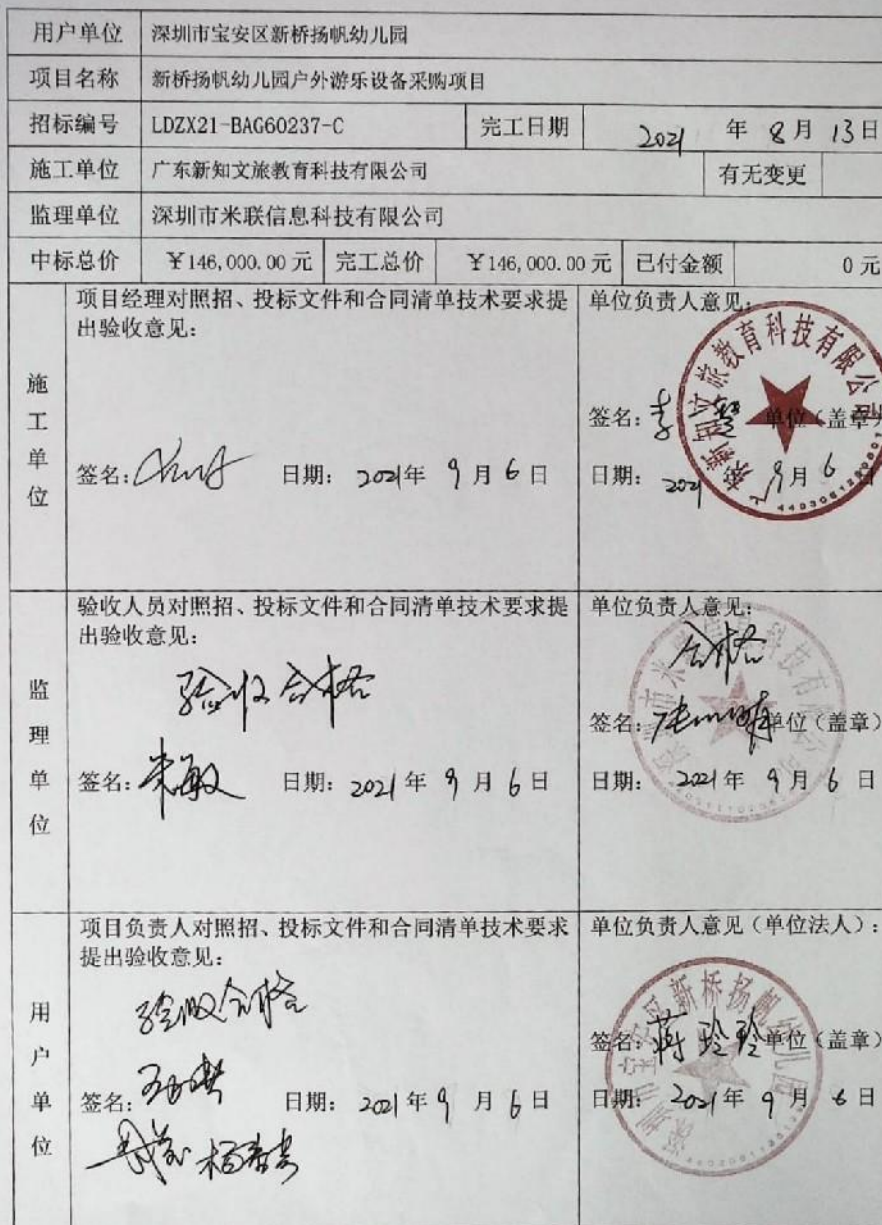 用户单位 深圳市宝安区新桥扬帆幼儿园
项目名称 新桥扬帆幼儿园户外游乐设备采购项目
招标编号 LDZX21-BAG60237-C 完工日期 2021 年 8 月 13 日
施工单位 广东新知文旅教育科技有限公司 有无变更
监理单位 深圳市米联信息科技有限公司
中标总价 ￥146,000.00 元 完工总价 ￥146,000.00 元 已付金额 0 元
施工单位
项目经理对照招、投标文件和合同清单技术要求提
出验收意见：
签名： 日期： 2021年 9 月 6 日
单位负责人意见：
签名：李 单位（盖章）
日期： 2021 9月 6 日
新知文旅教育科技有限公司
监理单位
验收人员对照招、投标文件和合同清单技术要求提
出验收意见：
验收合格
签名：朱敏 日期： 2021 年 9 月 6 日
单位负责人意见：
合格
签名： 单位（盖章）
日期： 2021 年 9 月 6 日
用户单位
项目负责人对照招、投标文件和合同清单技术要求
提出验收意见：
验收合格
签名： 日期： 2021 年 9 月 6 日
单位负责人意见（单位法人）：
签名：蒋玲玲 单位（盖章）
日期： 2021 年 9 月 6 日
深圳市宝安区新桥扬帆幼儿园